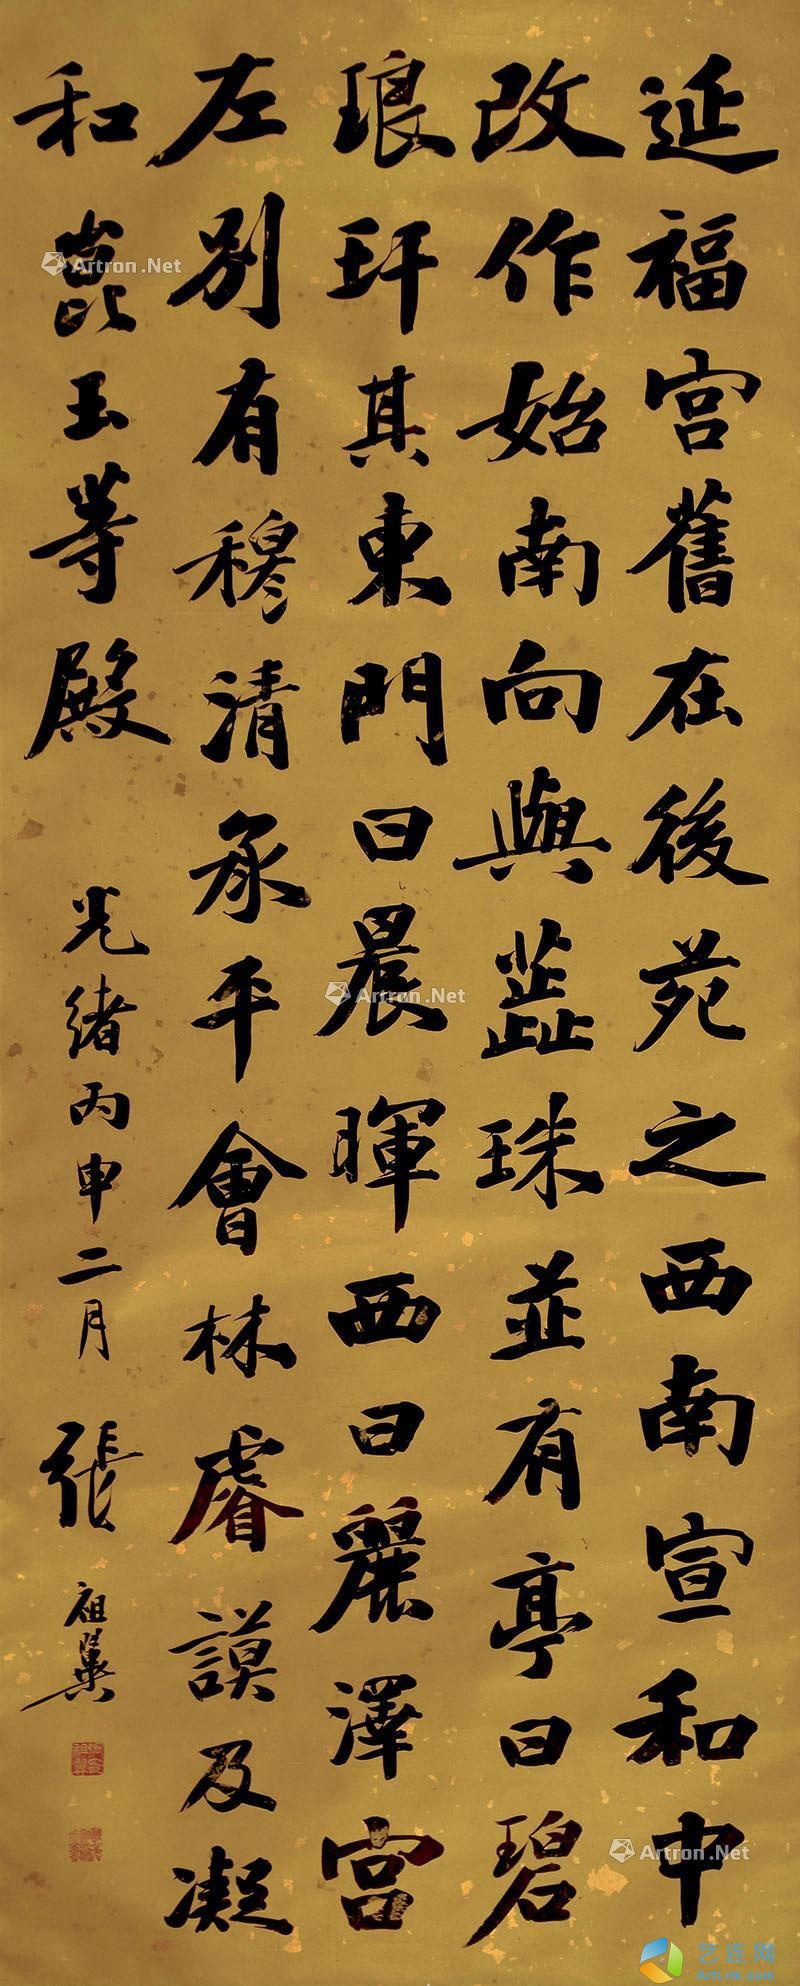 延福宫舊在後苑之西南宣和中
改作始南向與蕋珠並有亭曰碧
琅玕其東門曰晨暉西曰麗澤宫
左别有穆清承平會林睿謨及凝
和崑玉等殿
光緒丙申二月 張祖翼
Artron.Net
Artron.Net
Artron.Net
艺连网
ArtLnk.com